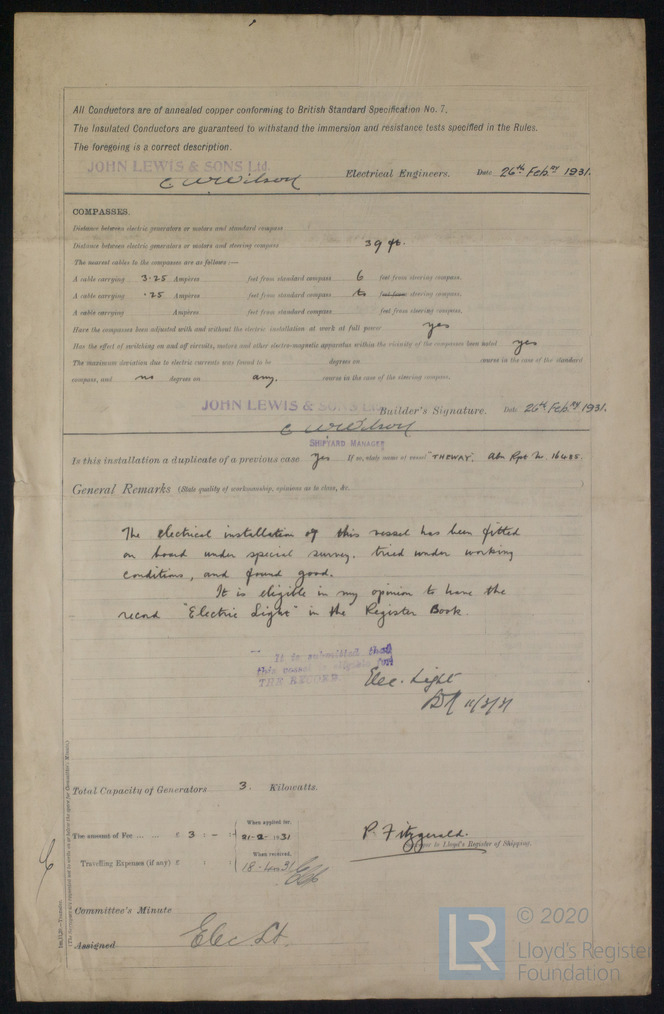 All Conductors are of annealed copper conforming to British Standard Specification No. 7.
The Insulated Conductors are guaranteed to withstand the immersion and resistance tests specified in the Rules.
The foregoing is a correct description.
JOHN LEWIS & SONS Ltd.
C W Wilson Electrical Engineers. Date 26th Febry 1931.
COMPASSES.
Distance between electric generators or motors and standard compass
Distance between electric generators or motors and steering compass 39 ft.
The nearest cables to the compasses are as follows:—
A cable carrying 3.25 Amperes feet from standard compass 6 feet from steering compass.
A cable carrying .25 Amperes feet from standard compass to feet from steering compass.
A cable carrying Amperes feet from standard compass feet from steering compass.
Have the compasses been adjusted with and without the electric installation at work at full power yes
Has the effect of switching on and off circuits, motors and other electro-magnetic apparatus within the vicinity of the compasses been noted yes
The maximum deviation due to electric currents was found to be degrees on course in the case of the standard
compass, and no degrees on any. course in the case of the steering compass.
JOHN LEWIS & SONS Ltd. Builder's Signature. Date 26th Febry 1931.
C W Wilson
SHIPYARD MANAGER
Is this installation a duplicate of a previous case yes If so, state name of vessel "THEWAY". Abn Rpt No. 16485
General Remarks (State quality of workmanship, opinions as to class, &c.
The electrical installation of this vessel has been fitted
on board under special survey. tried under working
conditions, and found good.
It is eligible in my opinion to have the
record "Electric Light" in the Register Book.
It is submitted that
this vessel is eligible for
THE RECORD Elec. Light
Total Capacity of Generators 3. Kilowatts.
The amount of Fee ... ... £ 3 : - : When applied for, 21-2-1931
Travelling Expenses (if any) £ : : When received, 18.4.1931
P. Fitzgerald.
Surveyor to Lloyd's Register of Shipping.
Committee's Minute
Assigned Elec Lt.
© 2020
LR
Lloyd's Register
Foundation